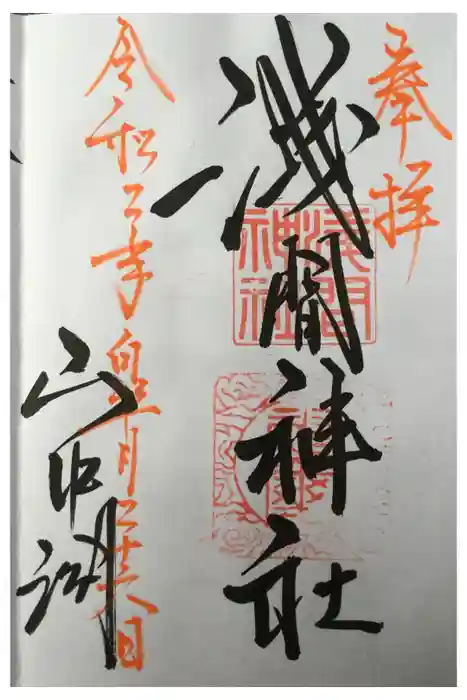 奉拝
浅間神社
浅間神社
令和二年皐月二十六日
山中湖